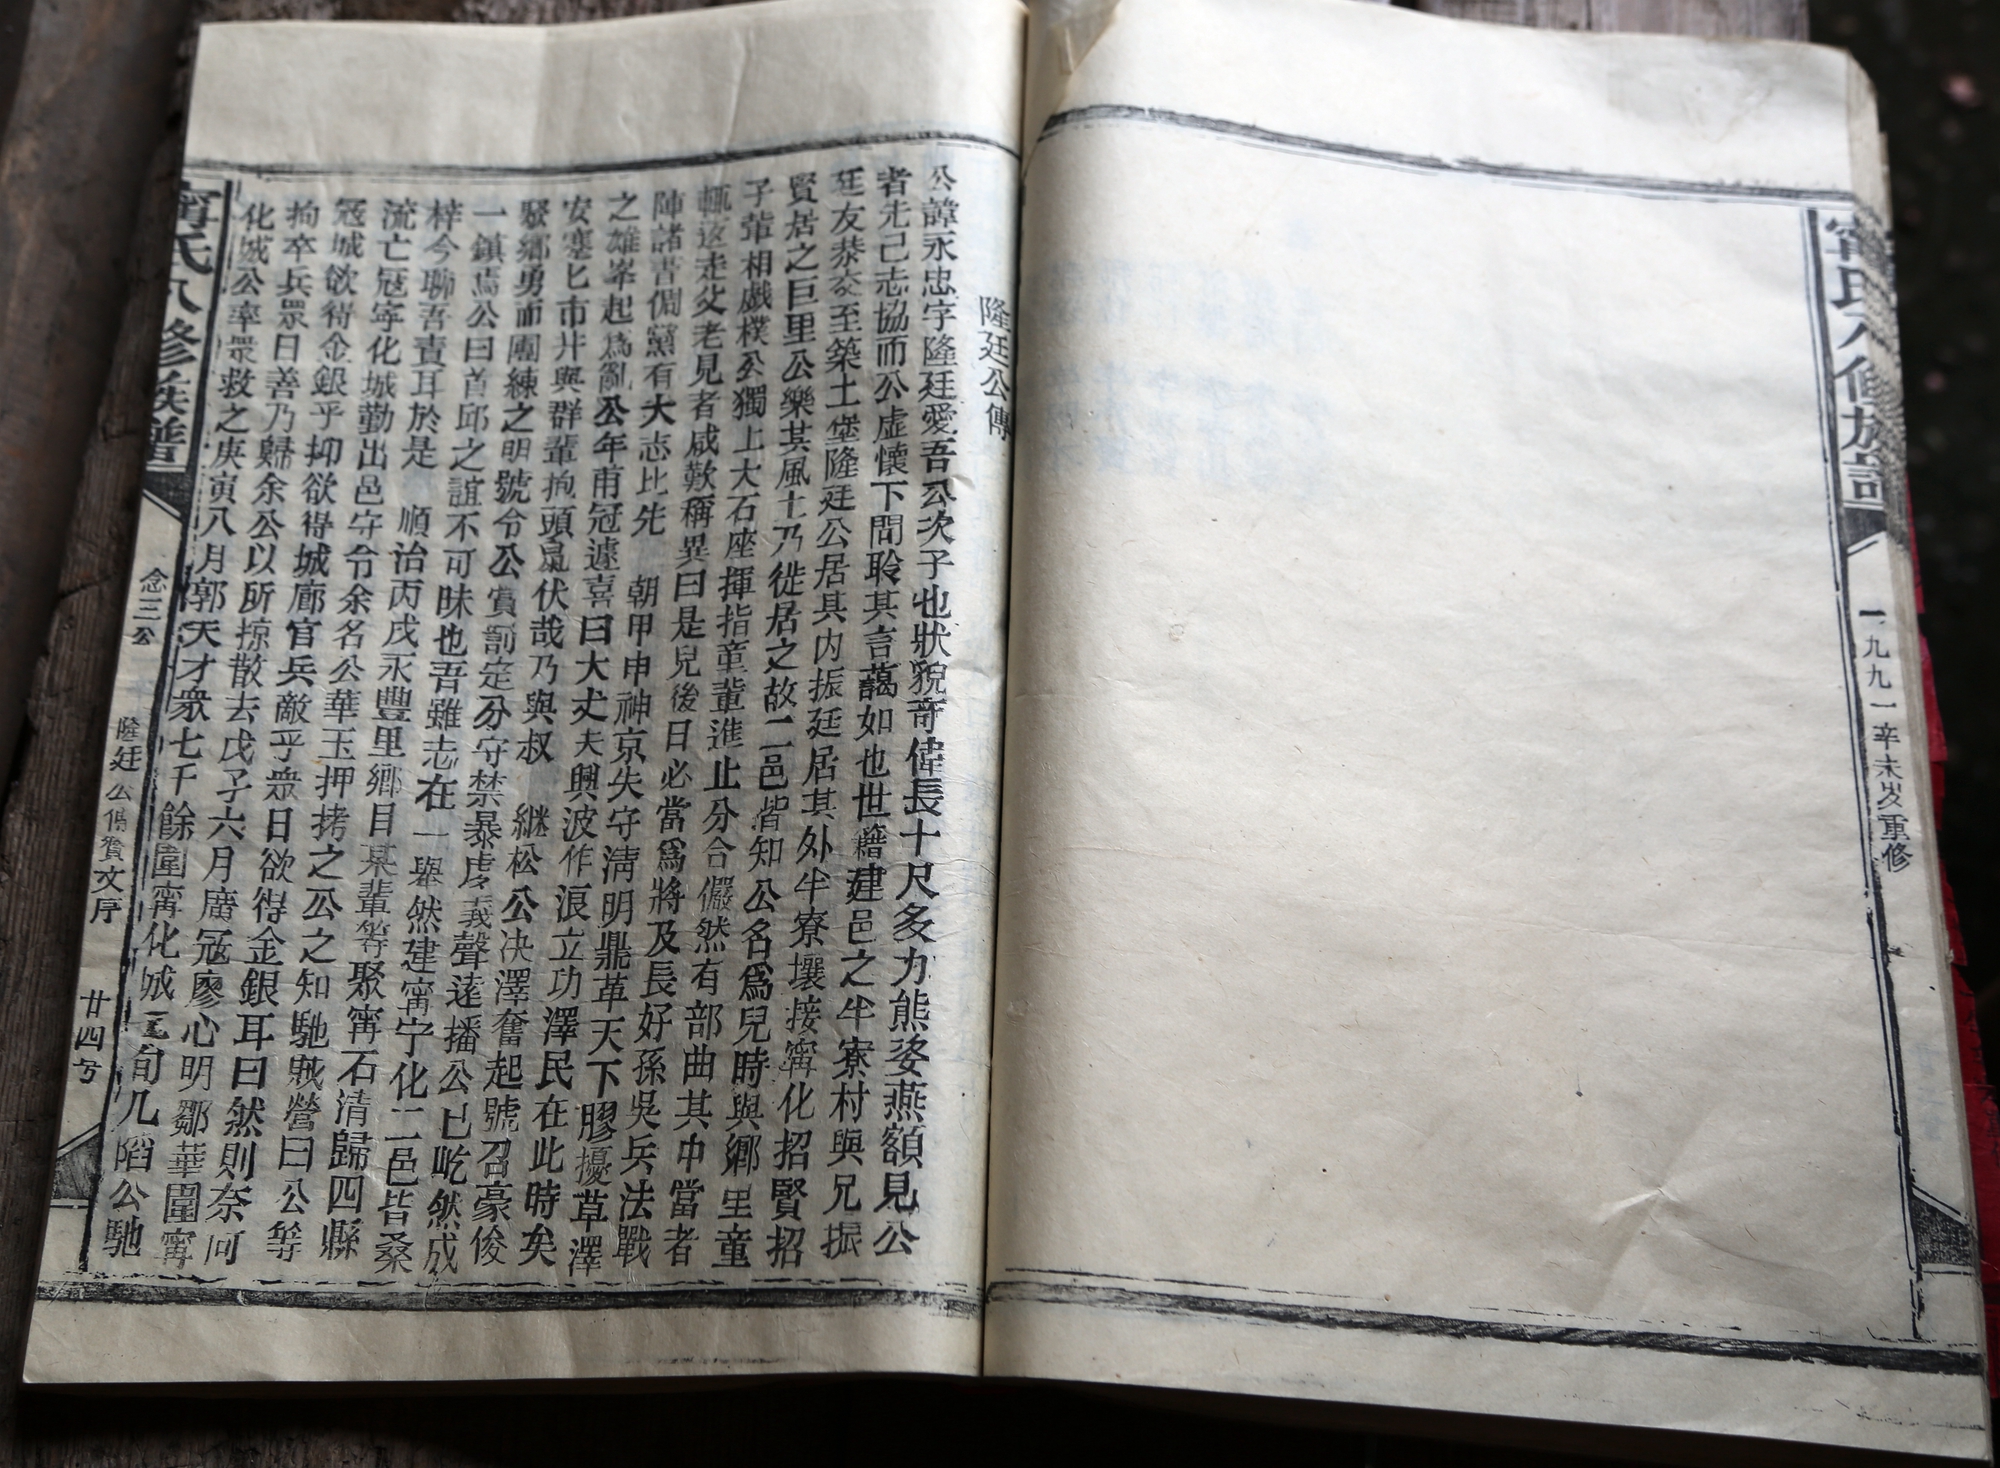 甯氏八修族譜
一九九一辛未岁重修
隆廷公傳
公諱永忠字隆廷愛吾公次子也狀貌奇偉長十尺多力熊姿燕額見公
者尤己志協而公虛懷下問聆其言藹如也世籍建邑之半寮村與兄振
廷友恭交至築土堡隆廷公居其内振廷居其外半寮壤接寗化招賢招
賢居之巨里公樂其風土乃徙居之故二邑皆知公名爲兒時與鄉里童
子輩相戲樸公獨上大石座揮指童輩進止分合儼然有部曲其中當者
輒返走父老見者咸歎稱異曰是兒後日必當爲將及長好孫吳兵法戰
陣諸書倜儻有大志比先 朝甲申神京失守清明鼎革天下膠擾草澤
之雄峯起爲亂公年甫冠遽喜曰大丈夫興波作浪立功澤民在此時矣
安塞匕市井與群輩拘頭鼠伏哉乃與叔 継松公决澤奮起號召豪俊
驟鄉勇而團練之明號令公賞罰定分守禁暴虐義聲遠播公已屹然成
一鎮焉公曰首邱之誼不可昧也吾雖志在一舉然建甯宁化二邑皆桑
梓今聊吾責耳於是 順治丙戌永豐里鄉目某輩等聚甯石清歸四縣
流亡冦寜化城勤出邑守令余名公華玉押拷之公之知馳賊營曰公等
冦城欲得金銀乎抑欲得城廓官兵敵乎眾曰欲得金銀耳曰然則奈何
拘卒兵眾曰善乃歸余公以所掠散去戊子六月廣冦廖心明鄒華圍甯
化城公率眾救之庚寅八月郭天才衆七千餘圍甯化城 旬几陷公馳
甯氏八修族譜
念三公
隆廷公傳賛文序
廿四号